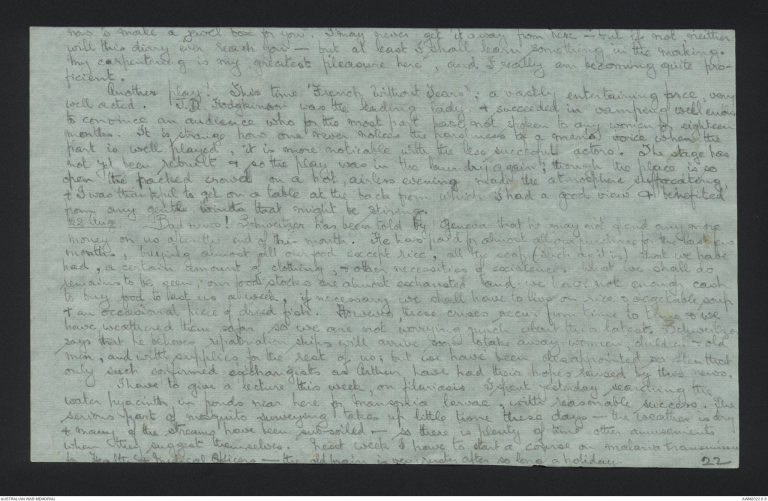 now is make a jewel box for you. I may never get it away from here — but if not neither
will this diary ever reach you — but at least I shall learn something in the making.
My carpentering is my greatest pleasure here, and I really am becoming quite pro-
ficient.
Another play! This time "French Without Tears"; a vastly entertaining farce, very
well acted. Hodgkinson was the leading lady, & succeeded in vamping well enough
to convince an audience who for the most part have not spoken to any women for eighteen
months. It is strange how one never notices the harshness of a mans' voice when the
part is well played; it is more noticable with the less succesful actors. The stage has
not yet been rebuilt & so the play was in the again; though the place is so
open the packed crowd on a hot, airless evening made the atmosphere suffocating
& I was thankful to get on a table at the back from which I had a good view & benefited
from any gentle winds that might be stirring.
22 Aug Bad news! Schweitzer has been told by Geneva that he may not spend any more
money on us after the end of this month. He has paid for almost all our purchases for the last few
months, buying almost all our food except rice, all the soap (such as it is) that we have
had, a certain amount of clothing, & other necessities of existence. What we shall do
remains to be seen; our food stocks are almost exhausted and we have not enough cash
to buy food to last us a week; if necessary we shall have to live on rice & vegetable soup
& an occasional piece of dried fish. However, these crises occur from time to time & we
have weathered them so far, so we are not worrying much about this latest. Schweitzer
says that he believes repatriation ships will arrive soon to take away women, children & old
men, and with supplies for the rest of us; but we have been disappointed so often that
only such confirmed exchangists as Arthur have had their hopes raised by this news.
I have to give a lecture this week, on filariasis. I spent yesterday searching the
water hyacinth in ponds near here for mansonia larvae, with reasonable success. The
serious part of mosquito surveying takes up little time these days — the weather is dry
& many of the streams have been sub-soiled — so there is plenty of time other amusements
when they suggest themselves. Next week I have to start a course on malaria transmission
to Health & Medical Officers — the old brain is very rusty after so long a holiday.
22
AUSTRALIAN WAR MEMORIAL